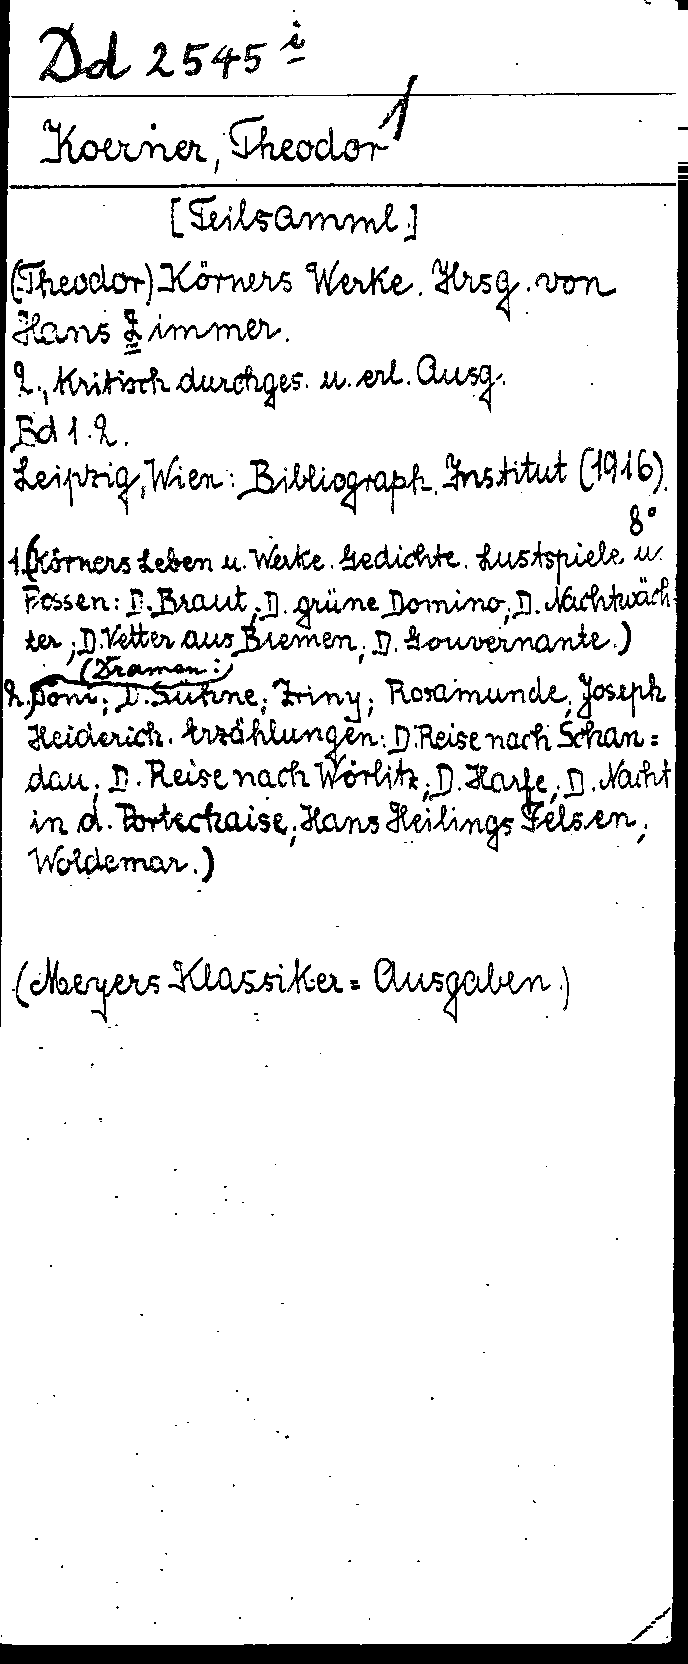 Dd 2545 i
Koerner, Theodor 1
[Teilsamml.]
(Theodor) Körners Werke. Hrsg. von
Hans Zimmer.
2., kritisch durchges. u. erl. Ausg.
Bd 1.2.
Leipzig, Wien: Bibliograph. Institut (1916).
8°
1.(Körners Leben u. Werke. Gedichte. Lustspiele u.
Possen: D. Braut; D. grüne Domino; D. Nachtwäch-
ter; D. Vetter aus Bremen; D. Gouvernante.)
(Dramen:
2. Toni; D. Sühne; Zriny; Rosamunde; Joseph
Heiderich. Erzählungen: D. Reise nach Schan=
dau; D. Reise nach Wörlitz; D. Harfe; D. Nacht
in d. Portechaise; Hans Heilings Felsen;
Woldemar.)
(Meyers Klassiker=Ausgaben.)